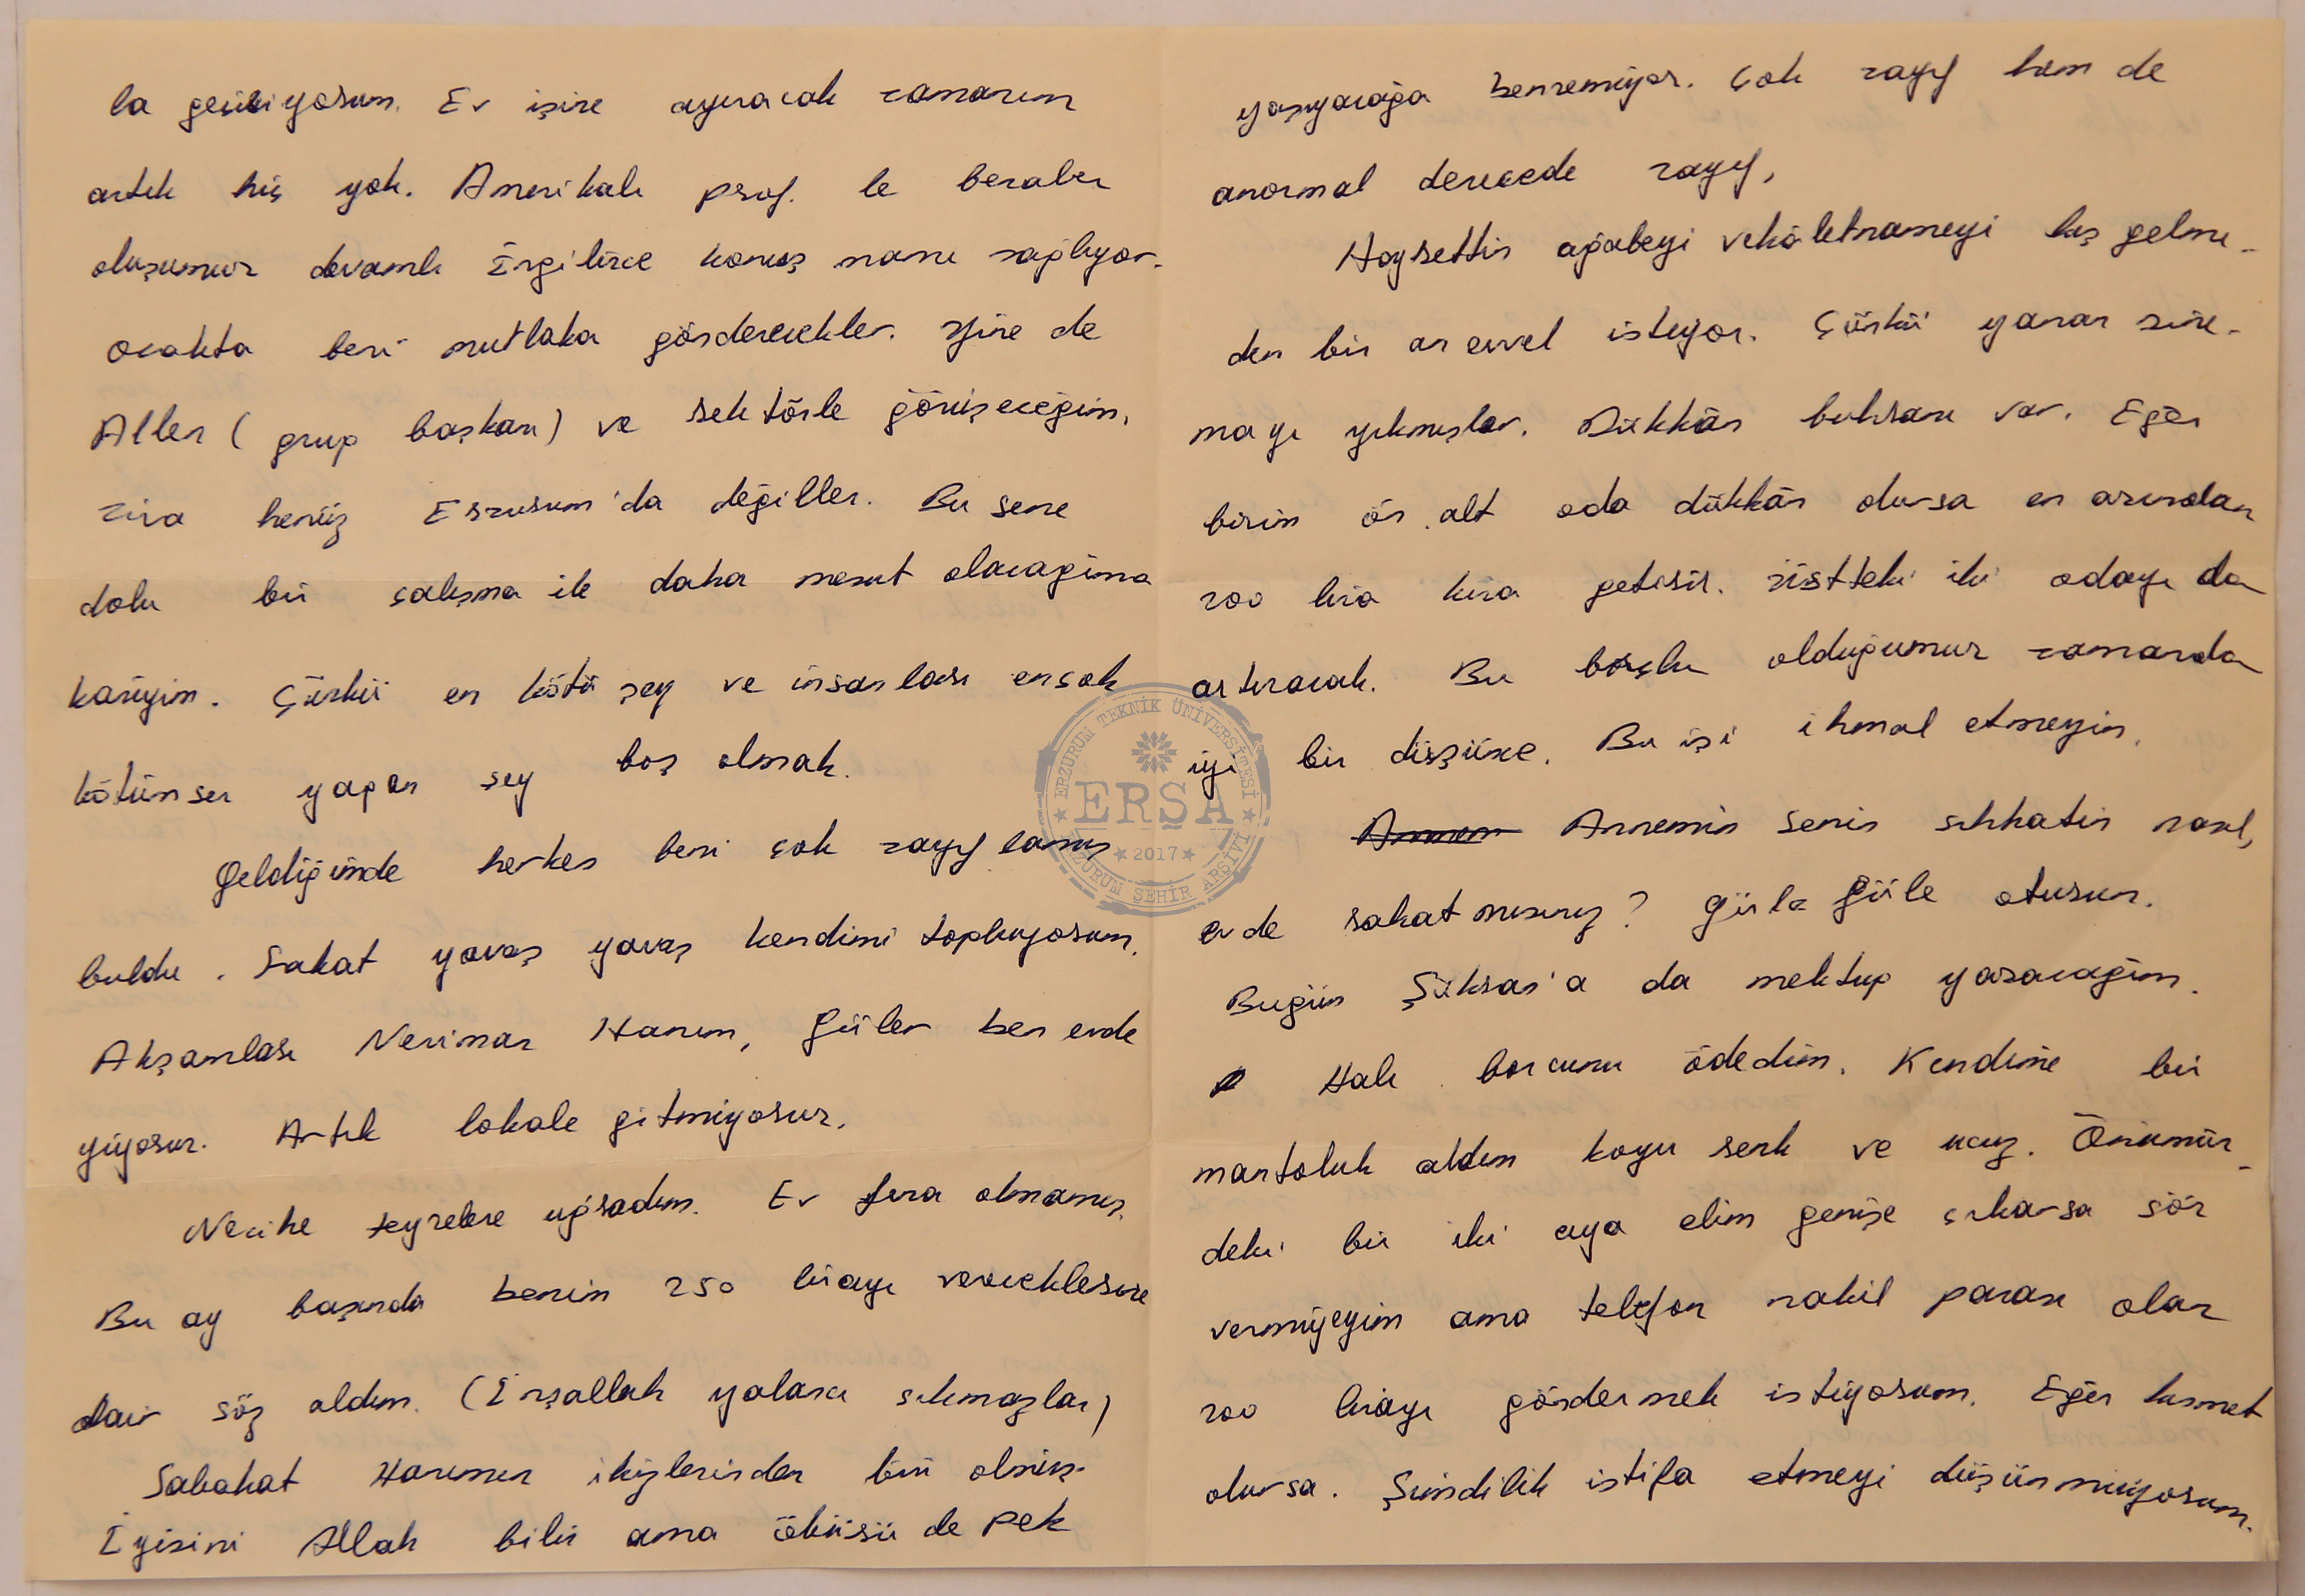 la geçiriyorum. Ev işine ayıracak zamanım
artık hiç yok. Amerikalı prof. le beraber
oluşumuz devamlı İngilizce konuşmamı sağlıyor.
Ocakta beni mutlaka gönderecekler. Yine de
Allen (grup başkanı) ve rektörle görüşeceğim,
zira henüz Erzurum'da değiller. Bu sene
dolu bir çalışma ile daha mesut olacağıma
kaniyim. Çünkü en kötü şey ve insanları ençok
kötümser yapan şey boş olmak.
Geldiğimde herkes beni çok zayıflamış
buldu. Fakat yavaş yavaş kendimi topluyorum.
Akşamları Neriman Hanım, Güler ben evde
yiyoruz. Artık lokale gitmiyoruz.
Necihe teyzelere uğradım. Ev fena olmamış.
Bu ay başında benim 250 lirayı vereceklerine
dair söz aldım. (İnşallah yalancı çıkmazlar)
Sabahat Hanımın ikizlerinden biri ölmüş.
İyisini Allah bilir ama öbürsü de pek
yaşıyacağa benzemiyor. Çok zayıf hem de
anormal derecede zayıf,
Hayrettin ağabeyi vekâletnameyi kış gelme-
den bir an evvel istiyor. Çünkü yanan sine-
mayı yıkmışlar. Dükkân buhranı var. Eğer
bizim ön alt oda dükkân olursa en azından
200 lira kira getirir. Üstteki iki odayı da
artıracak. Bu borçlu olduğumuz zamanda
iyi bir düşünce. Bu işi ihmal etmeyin.
Annem Annemin senin sıhhatin nasıl,
evde rahat mısınız? Güle Güle oturun.
Bugün Şükran'a da mektup yazacağım.
Halı borcunu ödedim. Kendime bir
mantoluk aldım koyu renk ve ucuz. Önümüz-
deki bir iki aya elim genişe çıkarsa söz
vermiyeyim ama telefon nakil parası olan
200 lirayı göndermek istiyorum. Eğer kısmet
olursa. Şimdilik istifa etmeyi düşünmüyorum.
ERZURUM TEKNİK ÜNİVERSİTESİ
ERŞA
2017
ERZURUM ŞEHİR ARŞİVİ